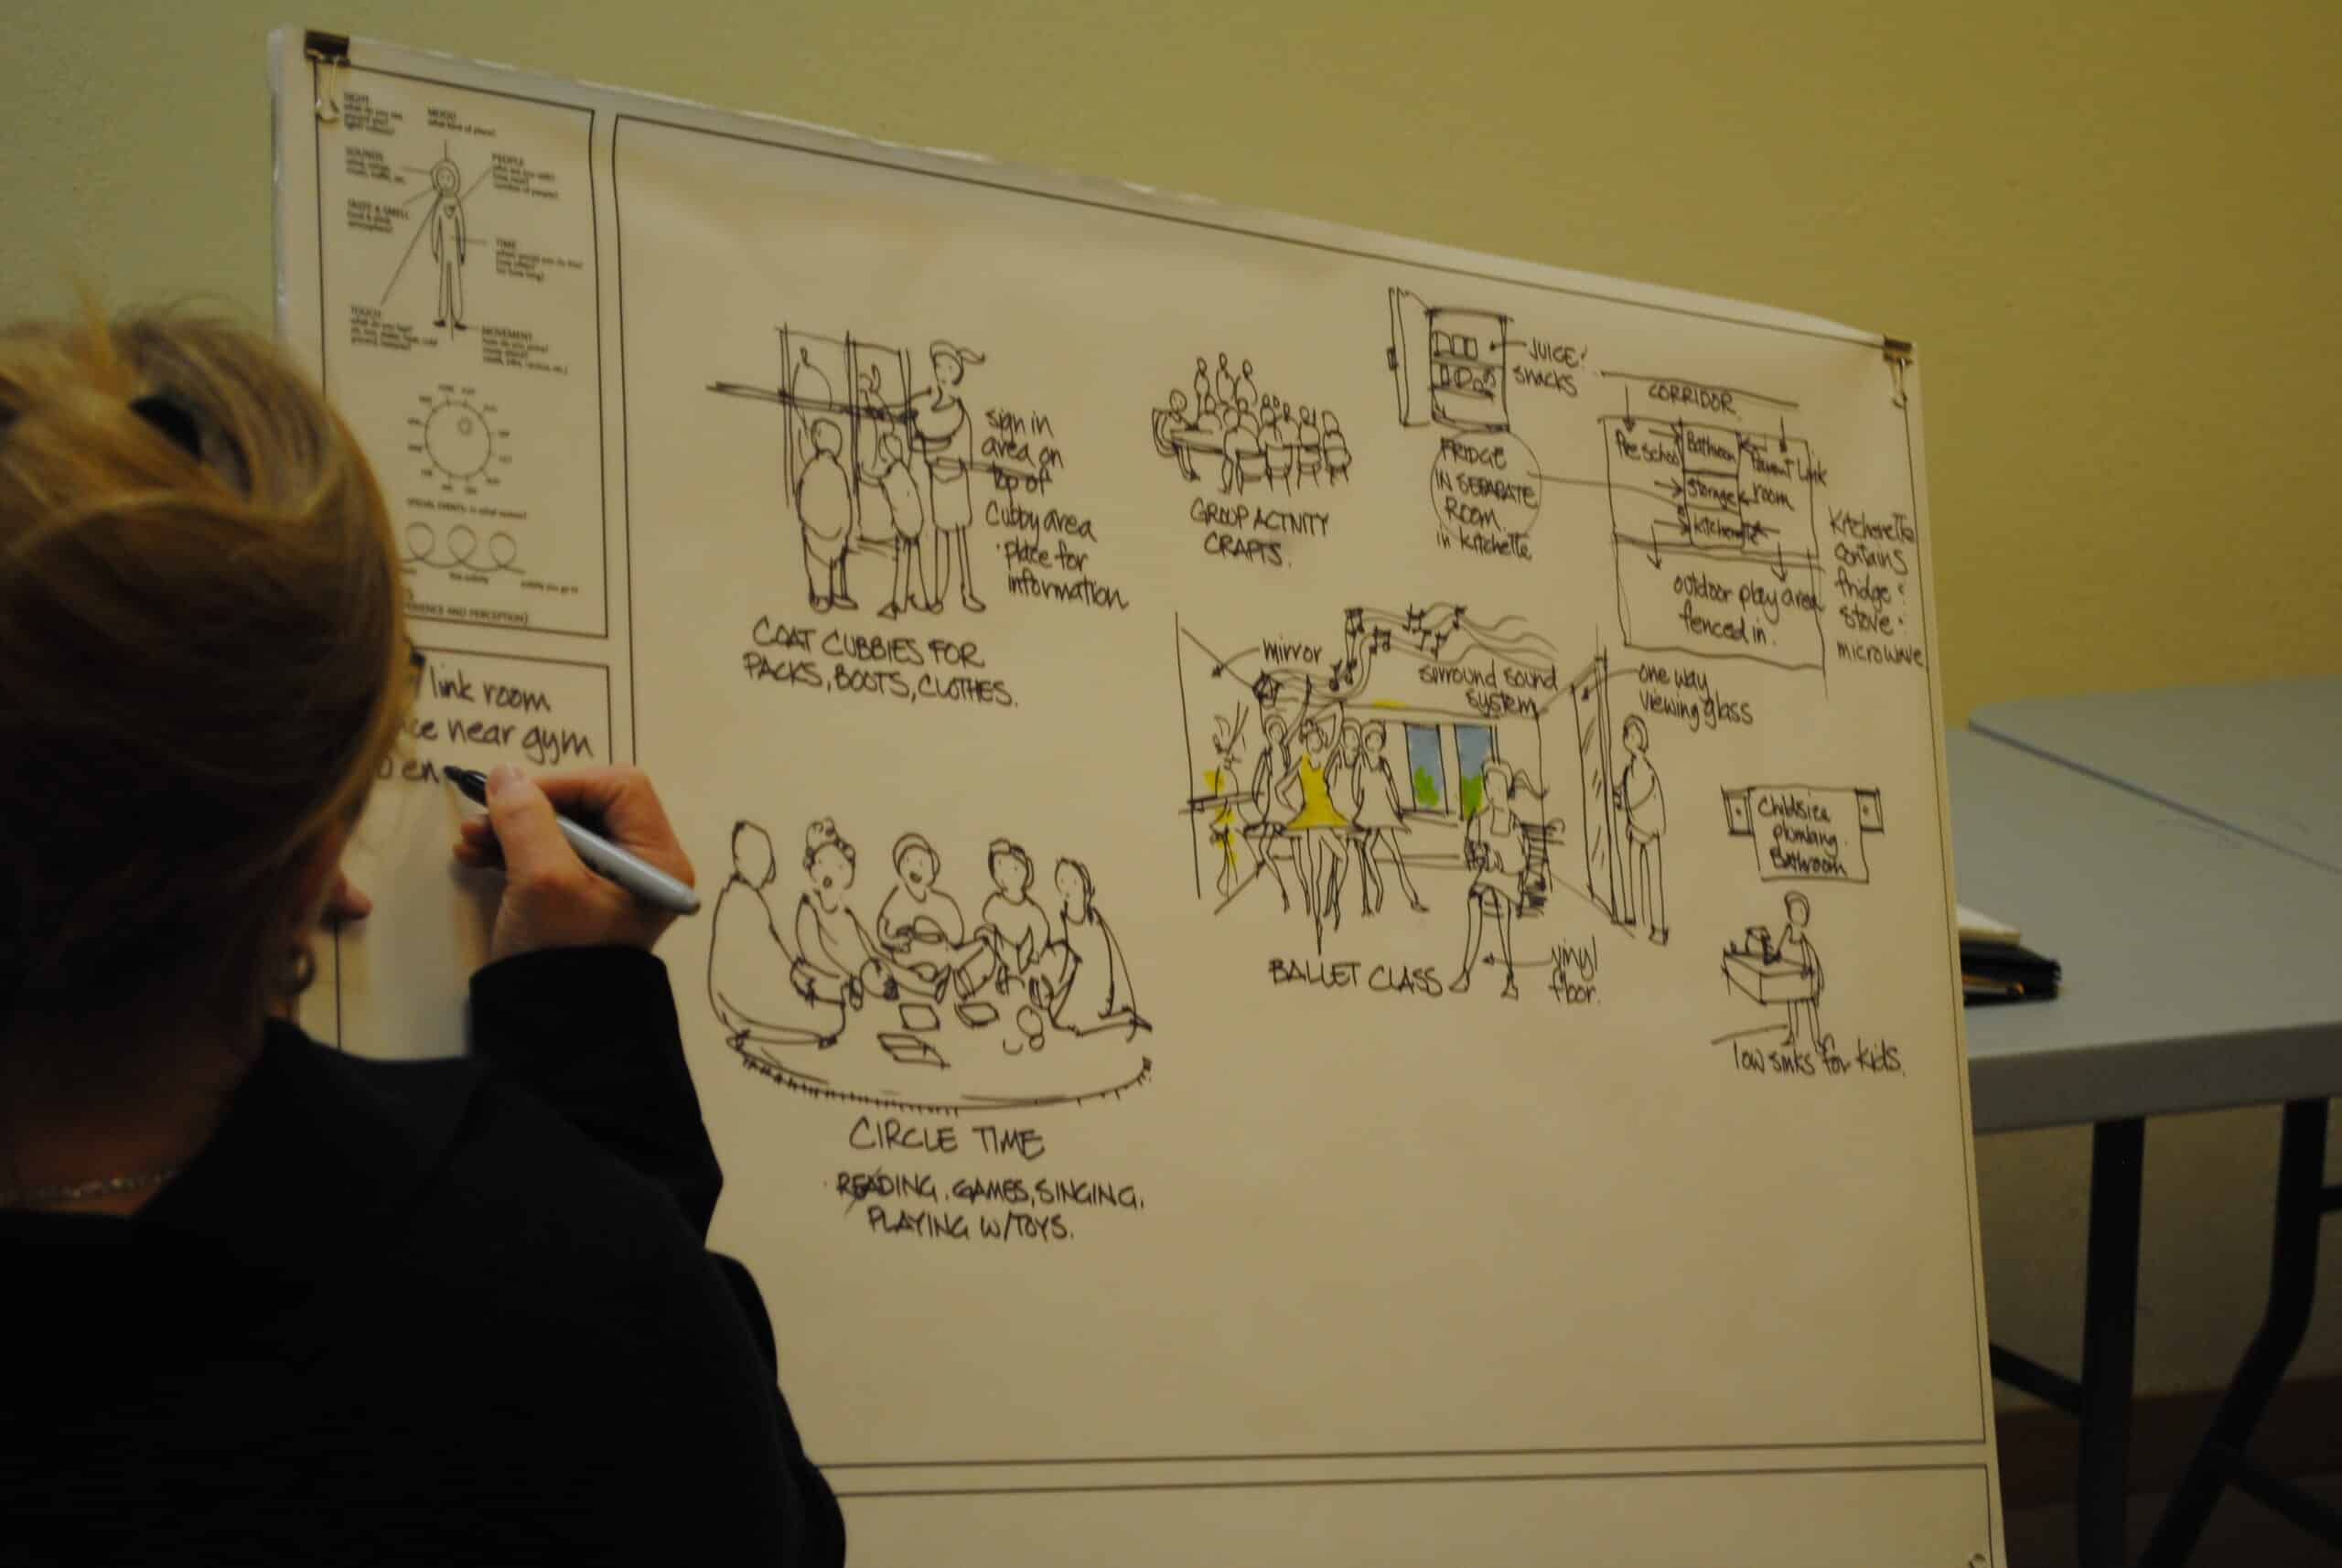 SIGHT
MOOD
what kind of place?
SOUNDS
PEOPLE
TASTE & SMELL
TIME
TOUCH
what do you feel?
MOVEMENT
how do you move?
SPECIAL EVENTS: in what season?
link room
near gym
en
COAT CUBBIES FOR
PACKS, BOOTS, CLOTHES.
sign in
area on
top of
cubby area
· place for
information
GROUP ACTIVITY
CRAFTS.
JUICE!
snacks
FRIDGE
IN SEPARATE
ROOM
in kitchette
CORRIDOR
Preschool
Bathroom
Parent Link
room
Storage
Kitchenette
outdoor play area
fenced in.
Kitchenette
contains
fridge :
stove :
microwave
mirror
surround sound
system
one way
viewing glass
BALLET CLASS
vinyl
floor.
Childsize
plumbing.
Bathroom
low sinks for kids.
CIRCLE TIME
· READING, GAMES, SINGING,
PLAYING W/TOYS.